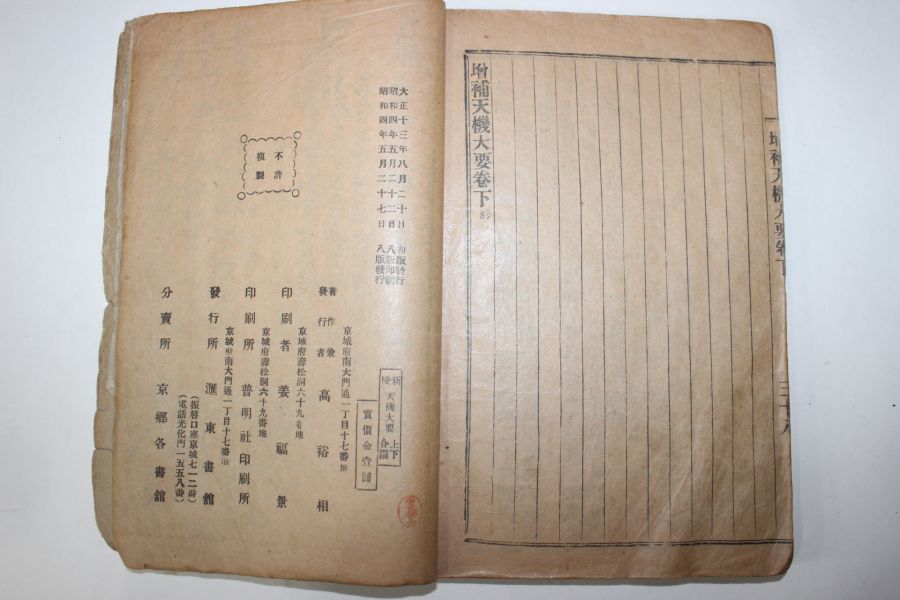 增補天機大要卷下
增補天機大要卷下終
新校 天機大要 上下合編
實價金壹圓
大正十三年八月二十日 初版發行
昭和四年五月二十二日 八版印刷
昭和四年五月二十七日 八版發行
不許
複製
京城府南大門通一丁目十七番地
著作兼發行者 高裕相
京城府壽松洞六十九番地
印刷者 姜福景
京城府壽松洞六十九番地
印刷所 普明社印刷所
京城府南大門通一丁目十七番地
發行所 滙東書館
(振替口座京城七一二番)
(電話光化門一五五八番)
分賣所 京鄉各書舘